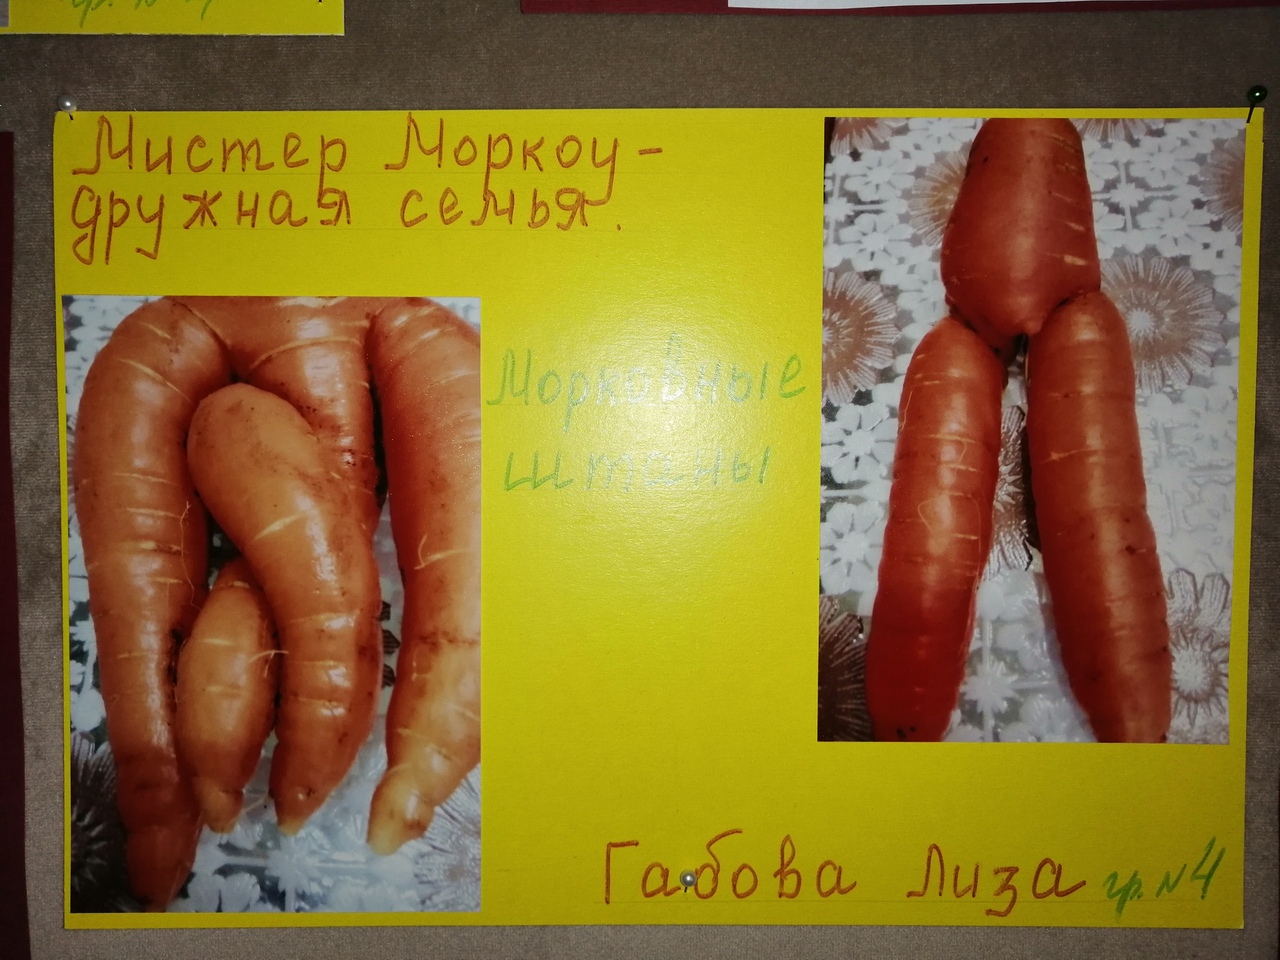 Мистер Моркоу -
дружная семья.
Морковные
штаны
Габова Лиза гр. №4